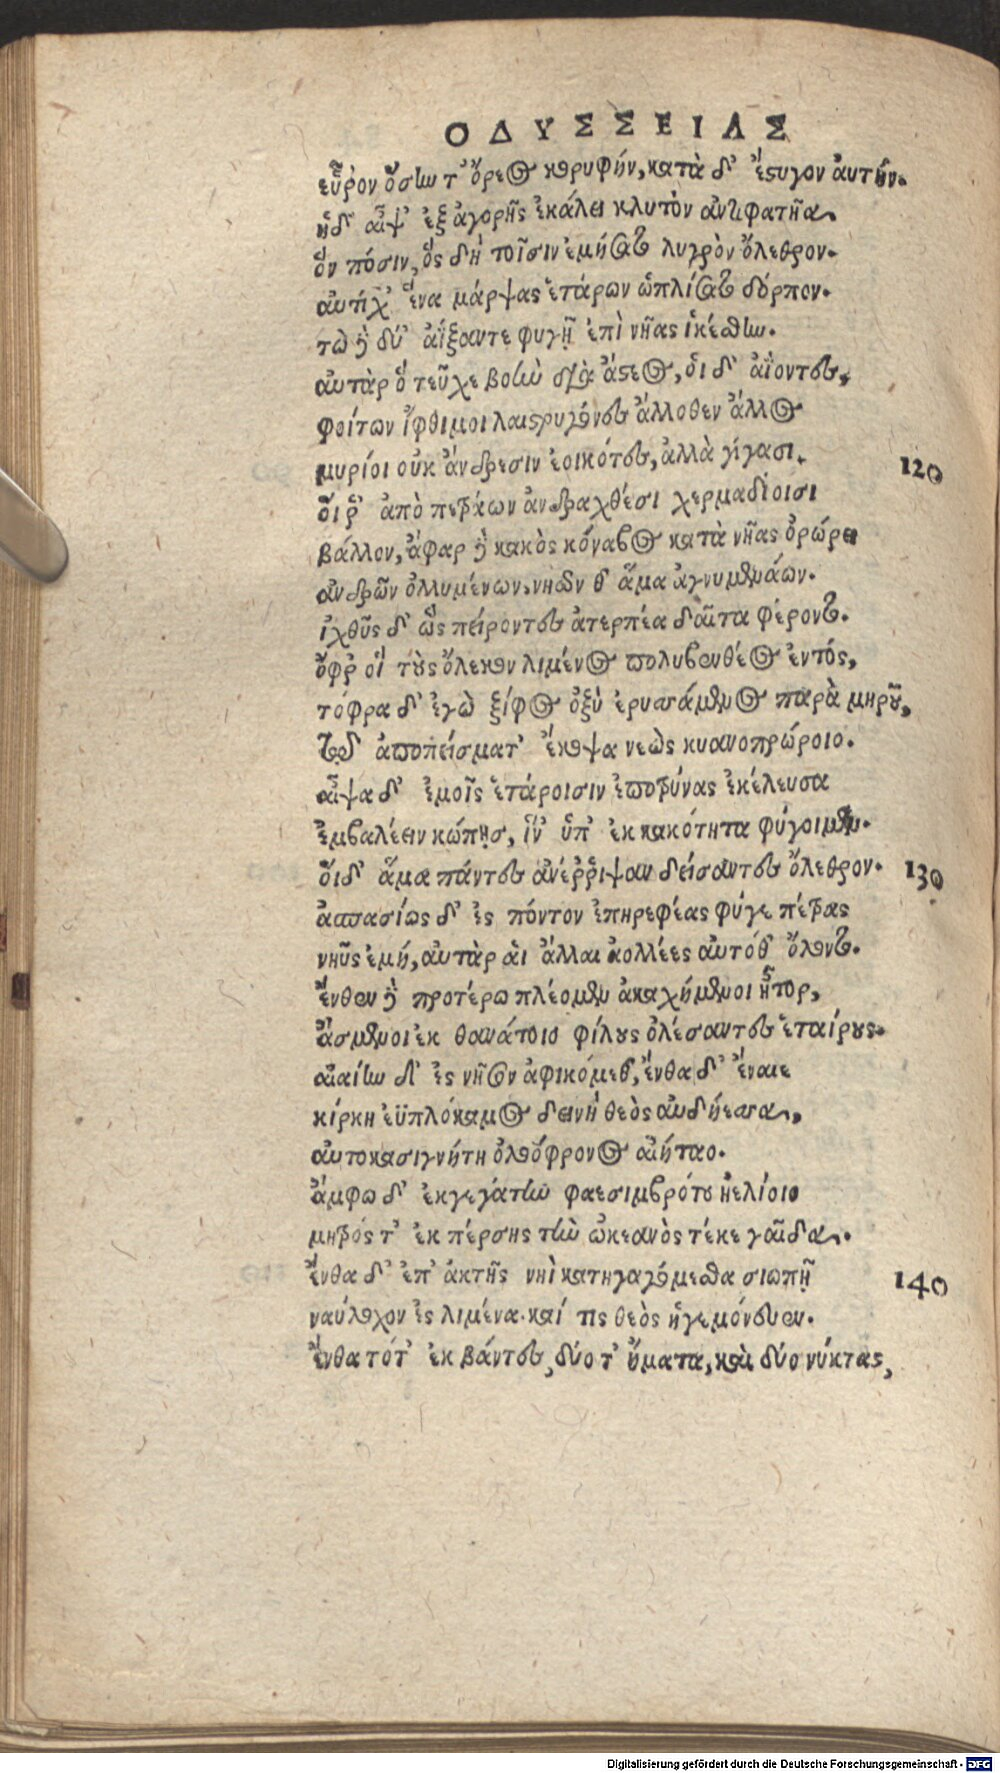 ΟΔΥΣΣΕΙΑΣ
εὗρον ὅσην τ' ὄρεος κορυφήν, κατὰ δ' ἔστυγον ἀυτήν.
ἡ δ' αἶψ' ἐξ ἀγορῆς ἐκάλει κλυτὸν ἀντιφατῆα
ὅν πόσιν, ὃς δὴ τοῖσιν ἐμήσατο λυγρὸν ὄλεθρον.
αὐτίχ' ἕνα μάρψας ἑτάρων ὡπλίσατο δόρπον.
τὼ δὲ δύ' ἀΐξαντε φυγῇ ἐπὶ νῆας ἱκέσθην.
αὐτὰρ ὁ τεῦχε βοὴν διὰ ἄστεος, ὁι δ' ἀΐοντες,
φοίτων ἴφθιμοι λαιστρυγόνες ἄλλοθεν ἄλλος
μυρίοι οὐκ ἄνδρεσιν ἐοικότες, ἀλλὰ γίγασι.
120
ὅι ῥ' ἀπὸ πετράων ἀνδραχθέσι χερμαδίοισι
βάλλον, ἄφαρ δὲ κακὸς κόναβος κατὰ νῆας ὀρώρει
ἀνδρῶν ὀλλυμένων, νηῶν θ' ἅμα ἀγνυμενάων.
ἰχθῦς δ' ὣς πείροντες ἀτερπέα δαῖτα φέροντο.
ὄφρ' οἵ τοὺς ὄλεκον λιμένος πολυβενθέος ἐντός,
τόφρα δ' ἐγὼ ξίφος ὀξύ ἐρυσσάμενος παρὰ μηροῦ,
τῷ δ' ἀποπείσματ' ἔκοψα νεὼς κυανοπρώροιο.
αἶψα δ' ἐμοῖς ἑτάροισιν ἐποτρύνας ἐκέλευσα
ἐμβαλέειν κώπῃσ, ἵν' ὑπ' ἐκ κακότητα φύγοιμεν.
ὅι δ' ἅμα πάντες ἀνέῤῥιψαν δείσαντες ὄλεθρον.
130
ἀσπασίως δ' ἐς πόντον ἐπηρεφέας φύγε πέτρας
νηῦς ἐμή, αὐτὰρ ἁι ἄλλαι ἀολλέες αὐτόθ' ὄλοντο.
ἔνθεν δὲ προτέρω πλέομεν ἀκαχήμενοι ἦτορ,
ἄσμενοι ἐκ θανάτοιο φίλους ὀλέσαντες ἑταίρους.
αἰαίην δ' ἐς νῆσον ἀφικόμεθ', ἔνθα δ' ἔναιε
κίρκη ἐϋπλόκαμος δεινὴ θεὸς αὐδήεσσα,
αὐτοκασιγνήτη ὀλοόφρονος αἰήταο.
ἄμφω δ' ἐκγεγάτην φαεσιμβρότου ἠελίοιο
μητρός τ' ἐκ πέρσης τὴν ὠκεανὸς τέκε γαῖδα.
ἔνθα δ' ἐπ' ἀκτῆς νηῒ κατηγαγόμεσθα σιωπῇ
140
ναύλοχον ἐς λιμένα. καί τις θεὸς ἡγεμόνευεν.
ἔνθα τότ' ἐκ βάντες, δύο τ' ἤματα, καὶ δύο νύκτας,
Digitalisierung gefördert durch die Deutsche Forschungsgemeinschaft - DFG